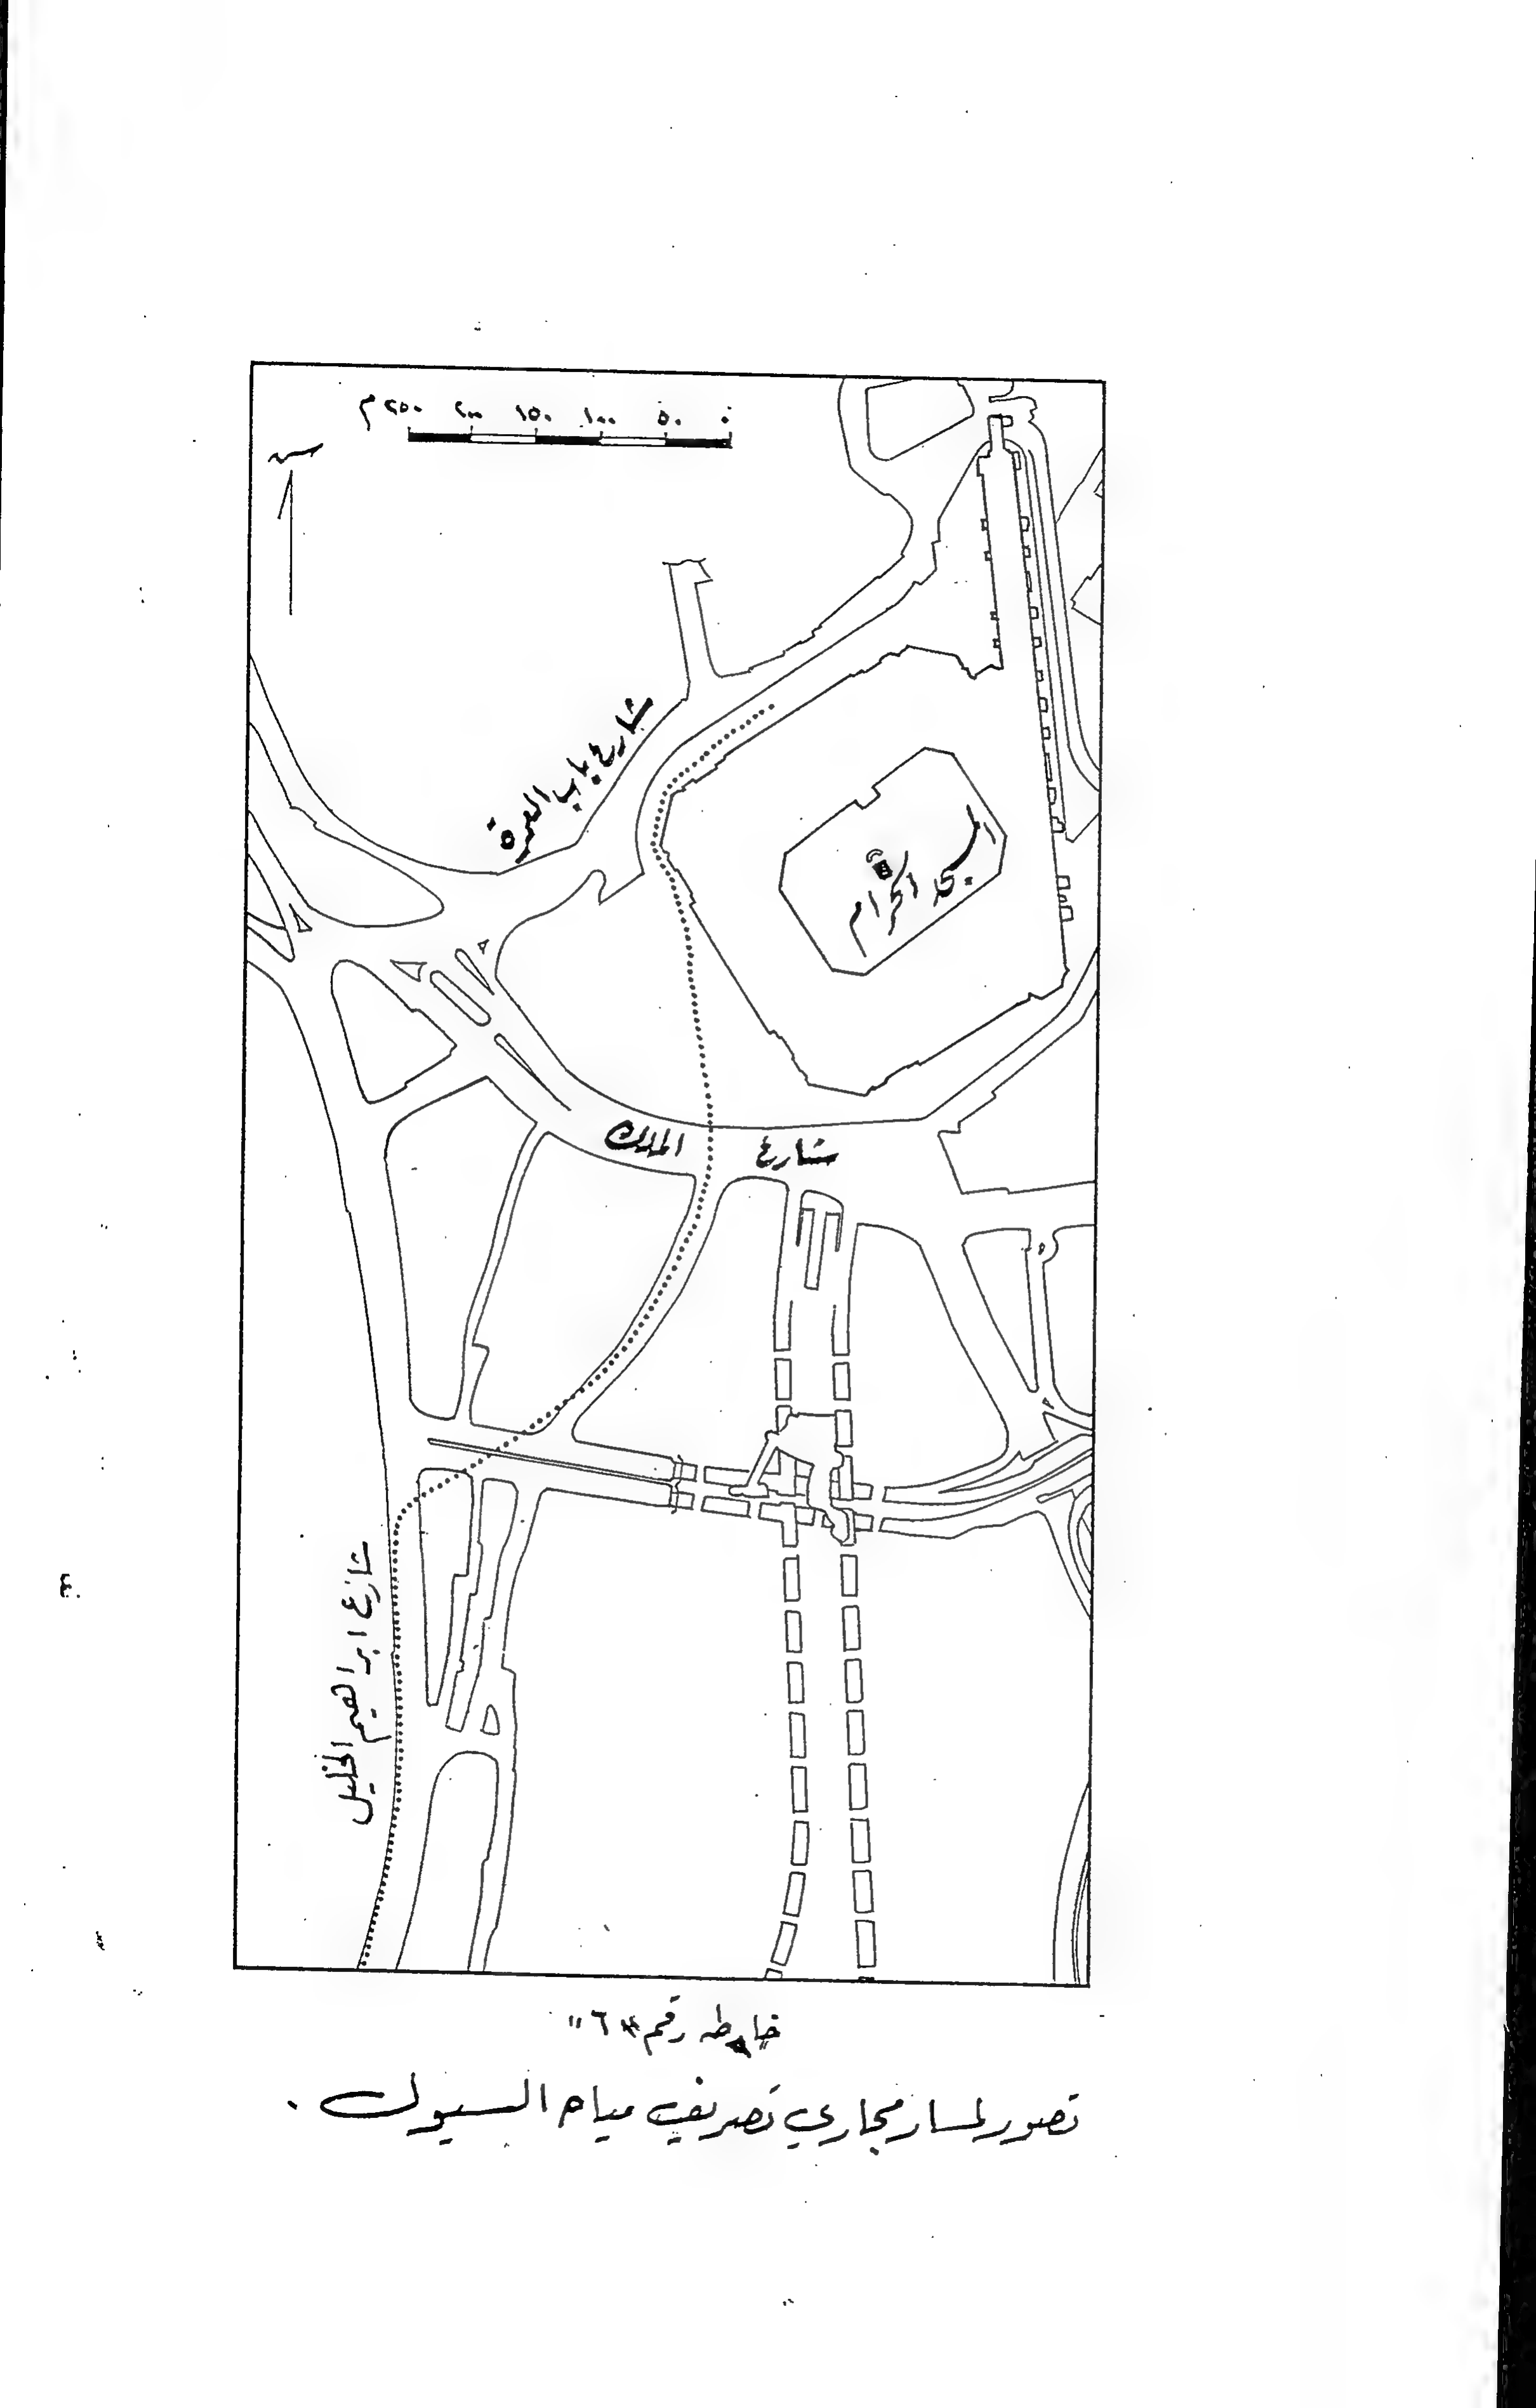 ٠ ٥٠ ١٠٠ ١٥٠ ٢٠٠ ٢٥٠ م
شارع باب العمرة
المسجد الحرام
شارع الملك
شارع ابراهيم الخليل
خارطه رقم "٦"
تصور لمسار مجاري تصريف مياه السيول .